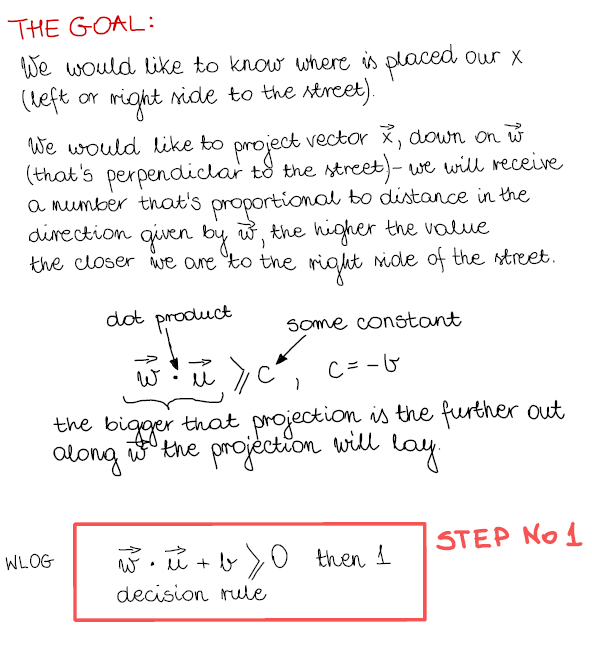 THE GOAL:
We would like to know where is placed our x
(left or right side to the street).
We would like to project vector x⃗, down on w⃗
(that's perpendiclar to the street) - we will receive
a number that's proportional to distance in the
direction given by w⃗, the higher the value
the closer we are to the right side of the street.
dot product
some constant
w⃗ · u⃗ ⩾ c, c = -b
the bigger that projection is the further out
along w⃗ the projection will lay.
STEP No 1
WLOG w⃗ · u⃗ + b ⩾ 0 then 1
decision rule